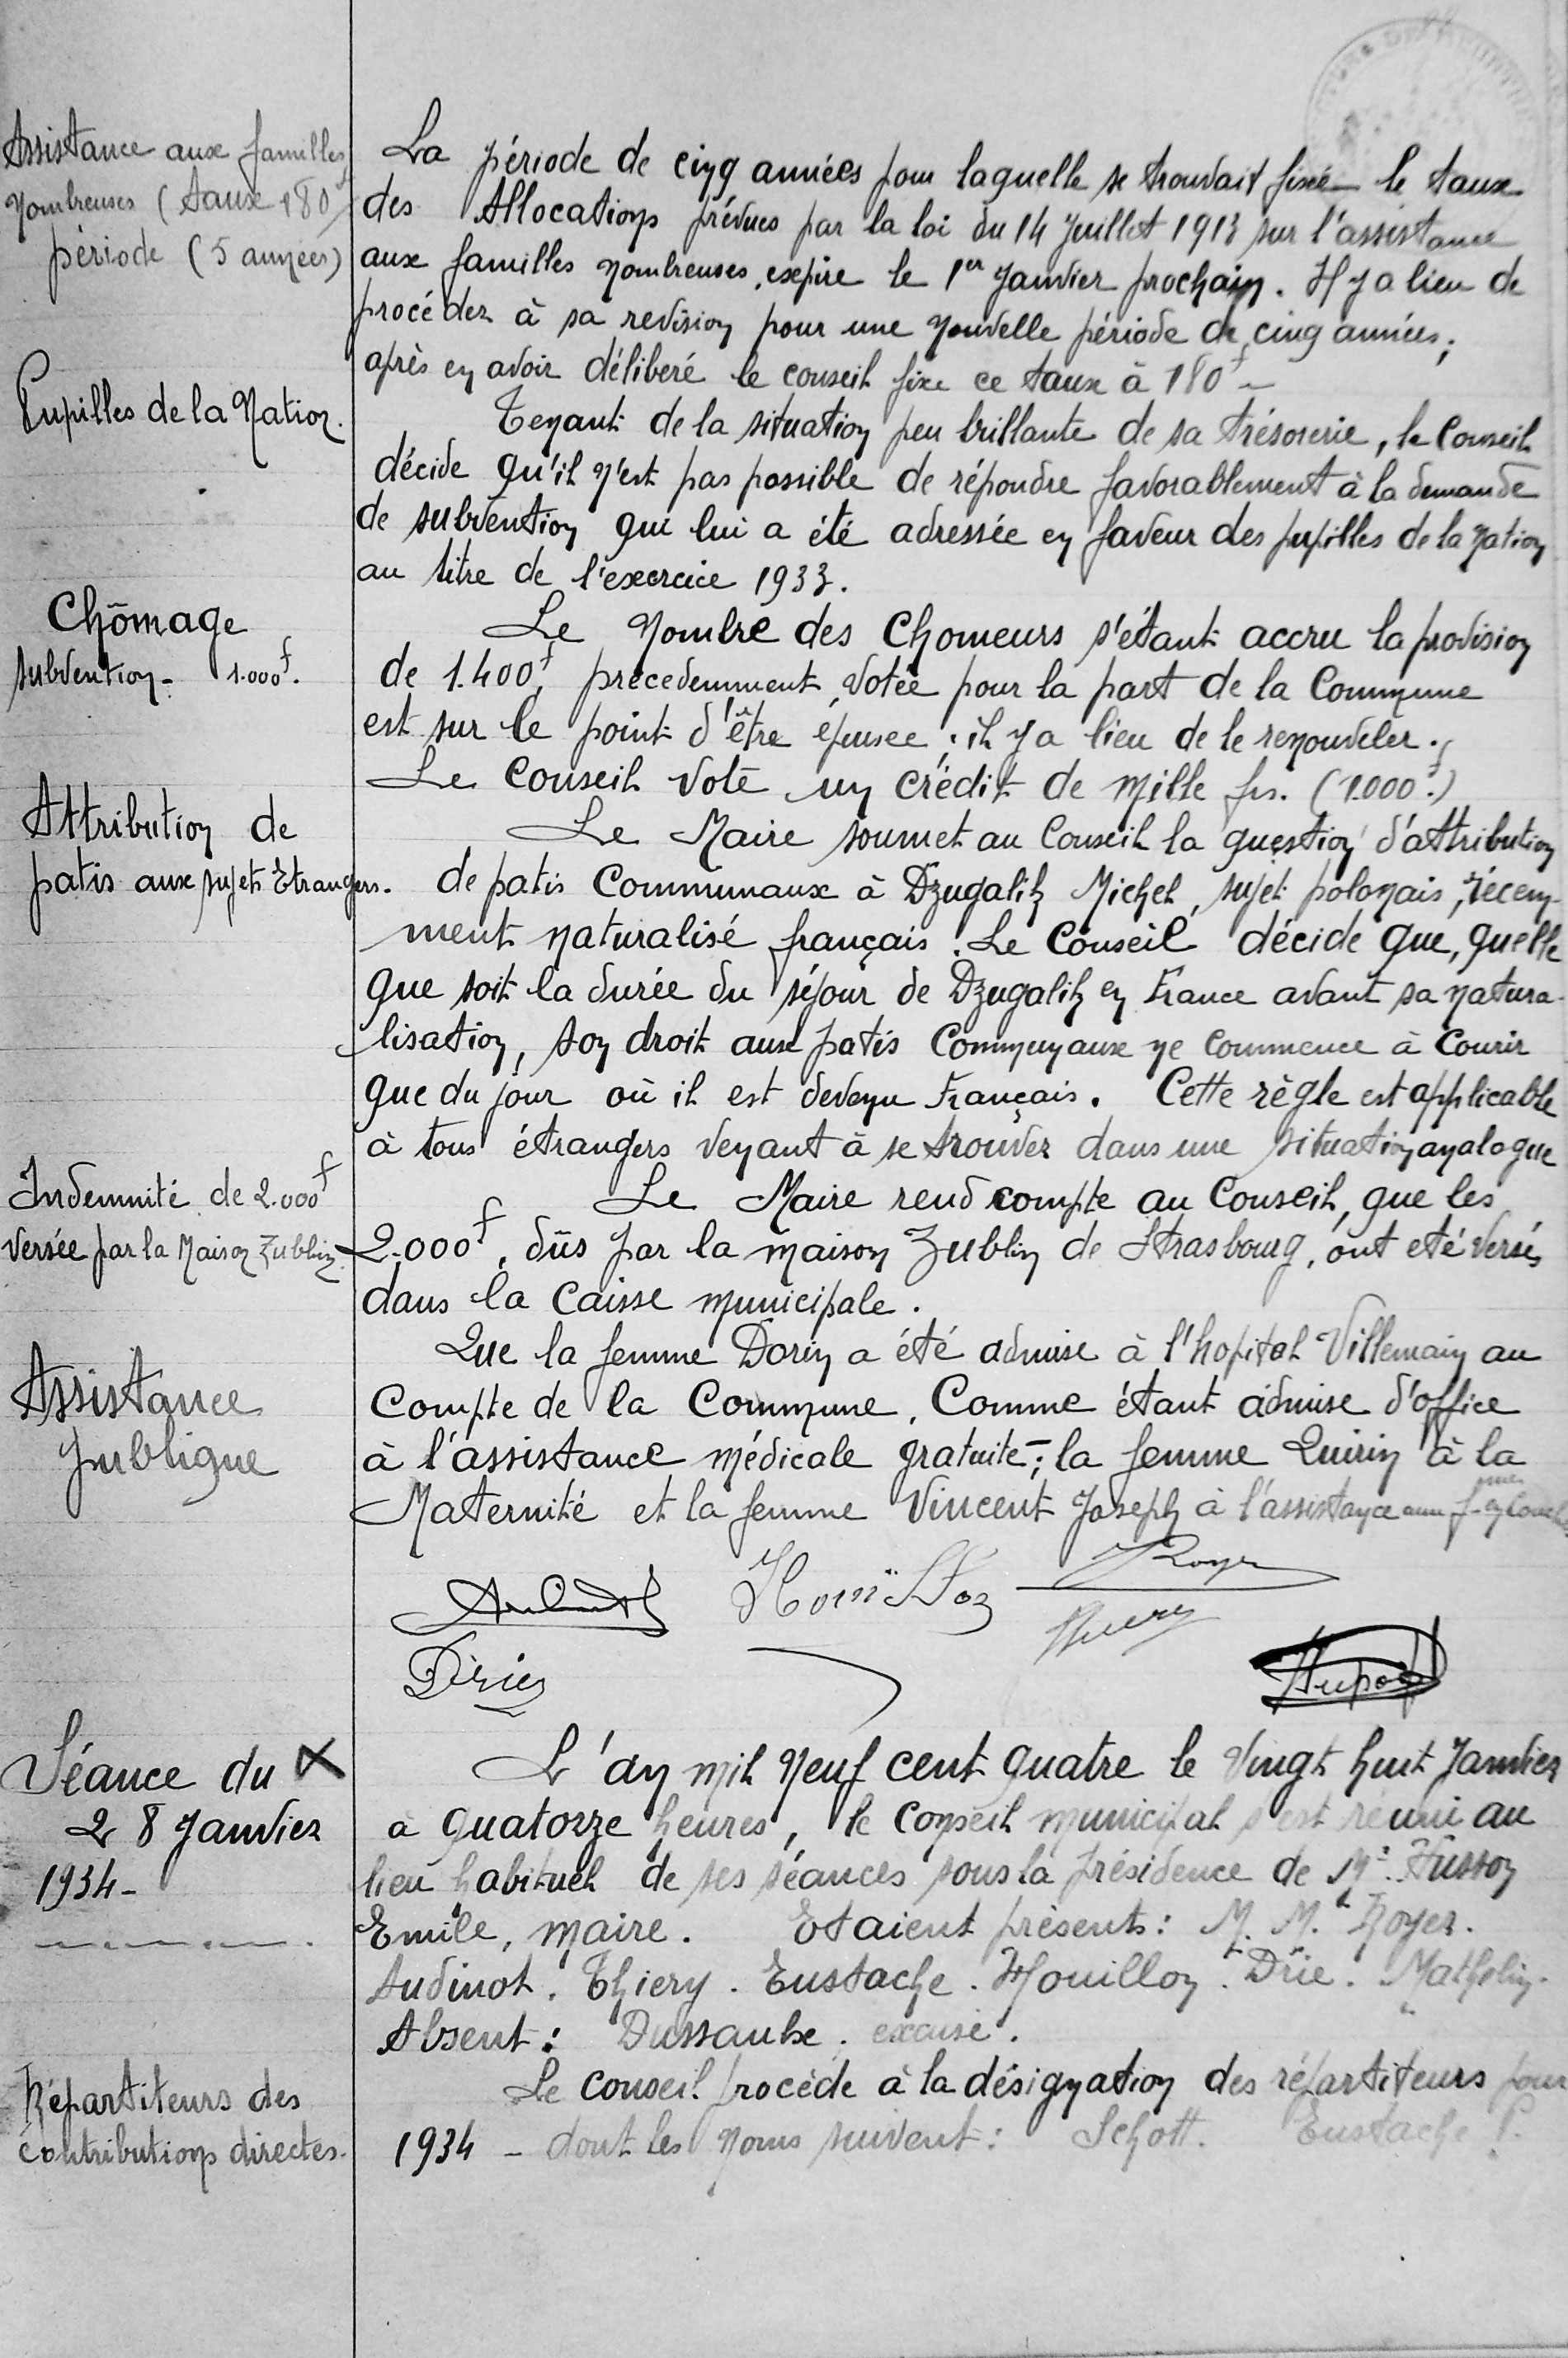 Assistance aux familles
nombreuses (taux 180f
période (5 années)
La période de cinq années pour laquelle se trouvait fixée le taux
des Allocations prévues par la loi du 14 Juillet 1913 sur l'assistance
aux familles nombreuses, expire le 1er Janvier prochain. Il y a lieu de
procéder à sa revision pour une nouvelle période de cinq années;
après en avoir délibéré le conseil fixe ce taux à 180f –
Pupilles de la Nation.
Tenant de la situation peu brillante de sa trésorerie, le Conseil
décide qu'il n'est pas possible de répondre favorablement à la demande
de subvention qui lui a été adressée en faveur des pupilles de la nation
au titre de l'exercice 1933.
Chômage
subvention - 1.000f.
Le nombre des Chomeurs s'étant accru la provision
de 1.400f, précedemment votée pour la part de la Commune
est sur le point d'être épuisée; il y a lieu de le renouveler.
Le Conseil vote un crédit de mille frs. (1.000f.)
Attribution de
patis aux sujets Etrangers.
Le Maire soumet au Conseil la question d'attribution
de patis Communaux à Dzugalik Michel, sujet polonais, récem-
ment naturalisé français. Le Conseil décide que, quelle
que soit la durée du séjour de Dzugalik en France avant sa natura-
lisation, son droit aux patis Communaux ne commence à courir
que du jour où il est devenu Français. Cette règle est applicable
à tous étrangers venant à se trouver dans une situation analogue
Indemnité de 2.000f
versée par la Maison Zublin.
Le Maire rend compte au Conseil, que les
2.000f, dûs par la maison Zublin de Strasbourg, ont eté versés
dans la Caisse municipale.
Assistance
publique
Que la femme Dorin a été admise à l'hopital Villemain au
Compte de la Commune, Comme étant admise d'office
à l'assistance médicale gratuite; la femme Quirin à la
Maternité et la femme Vincent Joseph à l'assistance aux fmes en couches
Royer
Séance du X
28 Janvier
1934 -
L'an mil neuf cent quatre le vingt huit Janvier
à quatorze heures, le Conseil municipal s'est réuni au
lieu habituel de ses séances sous la présidence de Mr. Husson
Emile, maire. Etaient présents: M. M. Royer.
Audinot. Thiery. Eustache. Houillon. Drie. Mathelin.
Absent: Dussaulx. excusé.
Répartiteurs des
Contributions directes.
Le Conseil procède à la désignation des répartiteurs pour
1934 – dont les noms suivent: Schott. Eustache P.